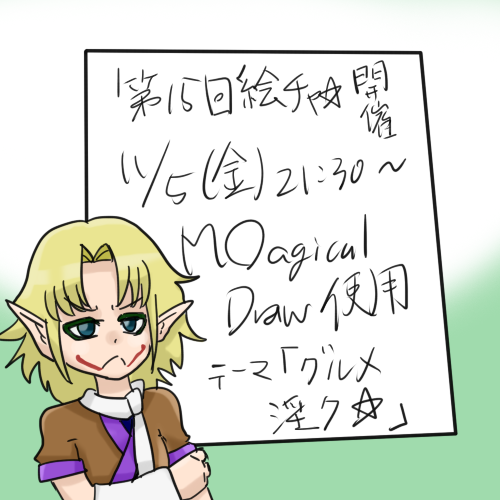 「第15回絵チャ☆開催
11/5(金)21:30～
MOagical
Draw使用
テーマ「グルメ
淫ク☆」